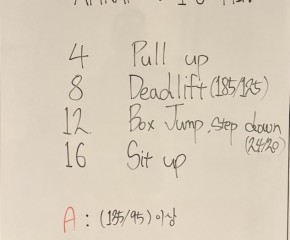 4 Pull up
8 Deadlift (185/125)
12 Box Jump. Step down
(24/20)
16 Sit up
A : (135/95) 이상